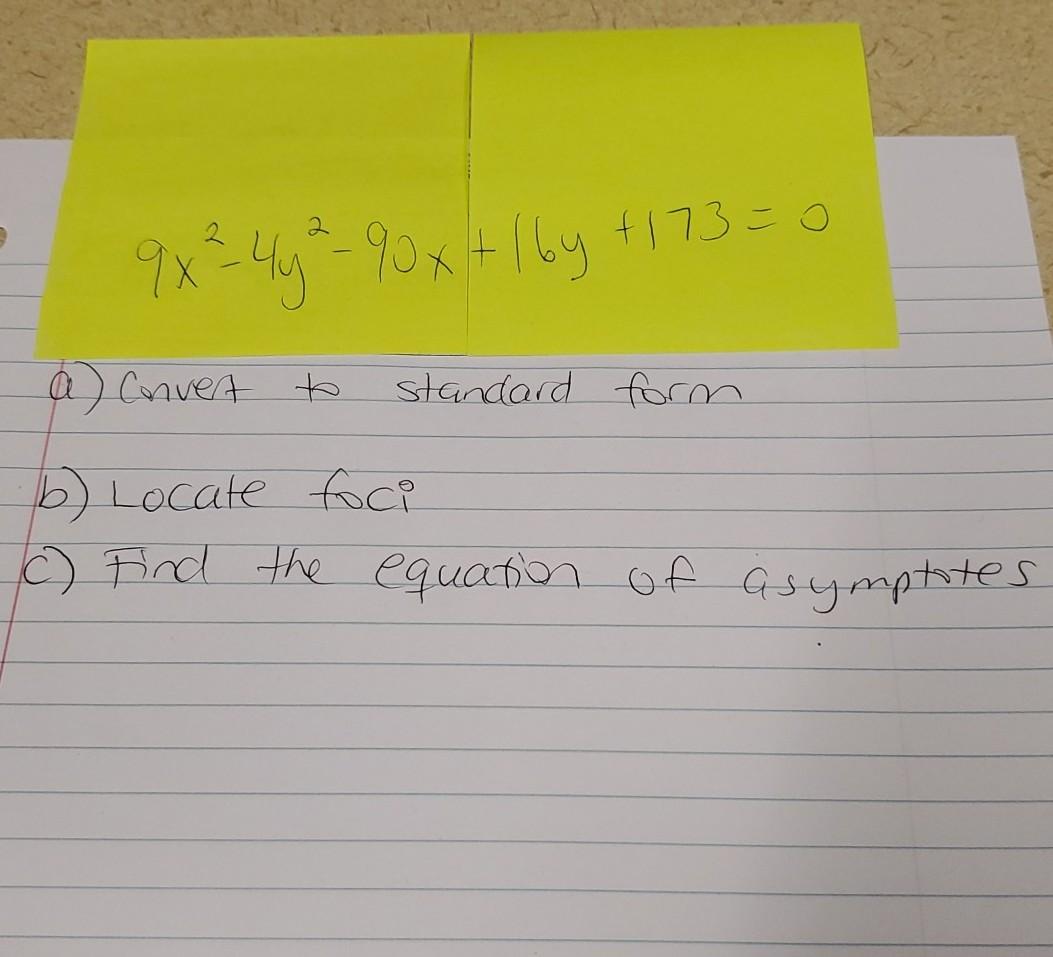 9x²-4y²-90x+16y+173=0
a) Convert to standard form
b) Locate foci
c) Find the equation of asymptotes